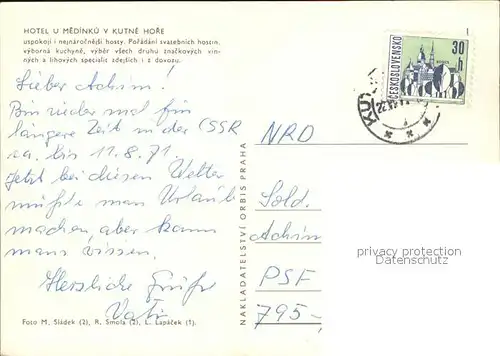 HOTEL U MĚDÍNKŮ V KUTNÉ HOŘE
uspokojí i nejnáročnější hosty. Pořádání svatebních hostin,
výborná kuchyně, výběr všech druhů značkových vin-
ných a lihových specialit zdejších i z dovozu.
Lieber Achim!
Bin wieder mal für
längere Zeit in der CSSR
ca. bis 11.8.71.
Jetzt bei diesen Wetter
müßte man Urlaub
machen, aber kann
mans wissen.
Herzliche Grüße
Vati
Foto M. Sládek (2), R. Smola (2), L. Lapáček (1).
NAKLADATELSTVÍ ORBIS PRAHA
ČESKOSLOVENSKO
30
h
KUT
NRD
Sold.
Achim
PSF
795-
privacy protection
Datenschutz